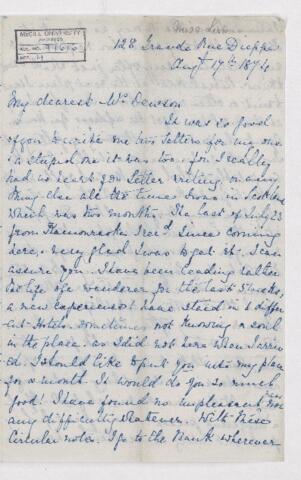 McGILL UNIVERSITY
ARCHIVES
ACC. NO.
REF. 14
128 Grande Rue Dieppe
Augt 17th 1874
My dearest Mrs Dawson
It was so good
of you to write me two letters for my one
& a stupid one it was too, for I really
had no heart for letter writing or any
thing else all the time I was in Scotland
which was two months. The last of July 23
from Kamouraska I recd since coming
here, very glad I was to get it. I can
assure you. I have been leading rather
the life of a wanderer for the last 5 weeks,
a new experience. I have staid in 6 differ
ent Hotels. Sometimes not knowing a soul
in the place. as I did not here when I arriv
ed. I should like to put you into my place
for a month. It would do you so much
good! I have found no unpleasantness nor
any difficulty whatever. With
Circular notes. I go to the Bank wherever